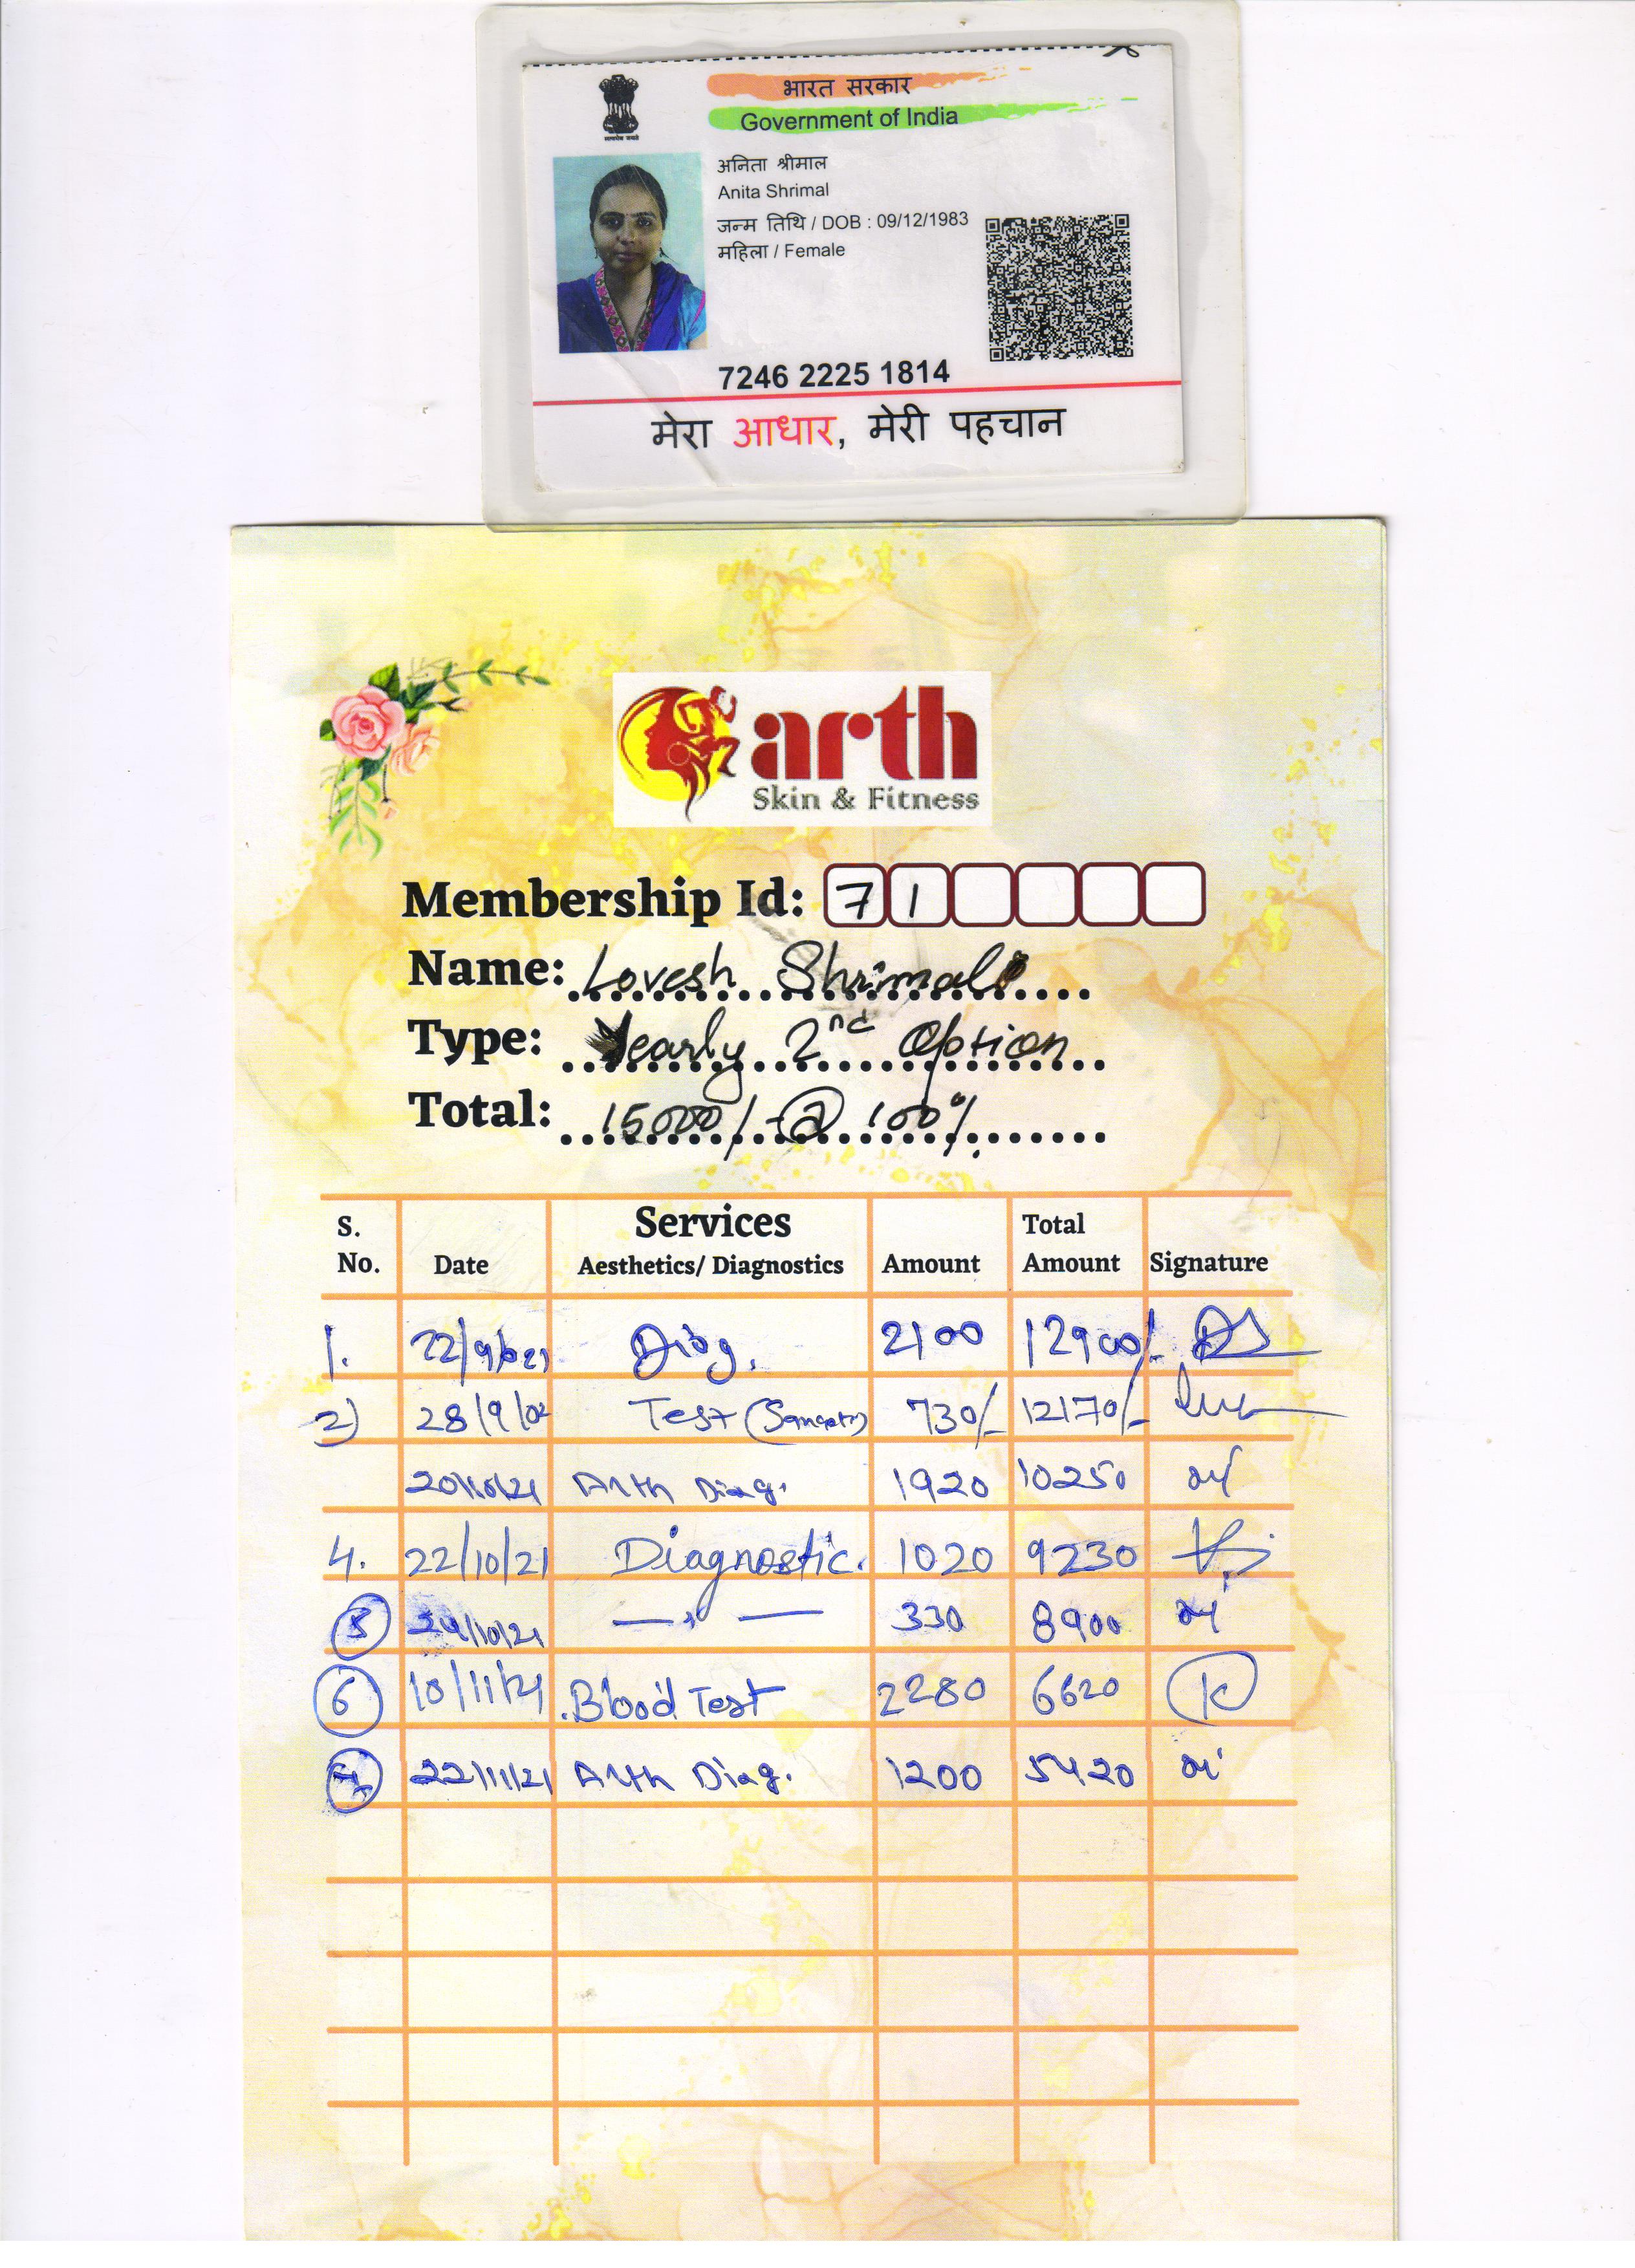 भारत सरकार
Government of India
अनिता श्रीमाल
Anita Shrimal
जन्म तिथि / DOB : 09/12/1983
महिला / Female
7246 2225 1814
मेरा आधार, मेरी पहचान
arth
Skin & Fitness
Membership Id: 7 1
Name: Lovesh Shrimali
Type: Yearly 2nd Option
Total: 15000/- @ 100%
S. No. Date Services Aesthetics/ Diagnostics Amount Total Amount Signature
1. 22/9/2021 Diag. 2100 12900/-
2) 28/9/ Test 730/- 12170/-
20/10/21 Arth Diag. 1920 10250
4. 22/10/21 Diagnostic. 1020 9230
5 29/10/21 —„— 330 8900
6 18/11/21 Blood Test 2280 6620
7 22/11/21 Arth Diag. 1200 5420